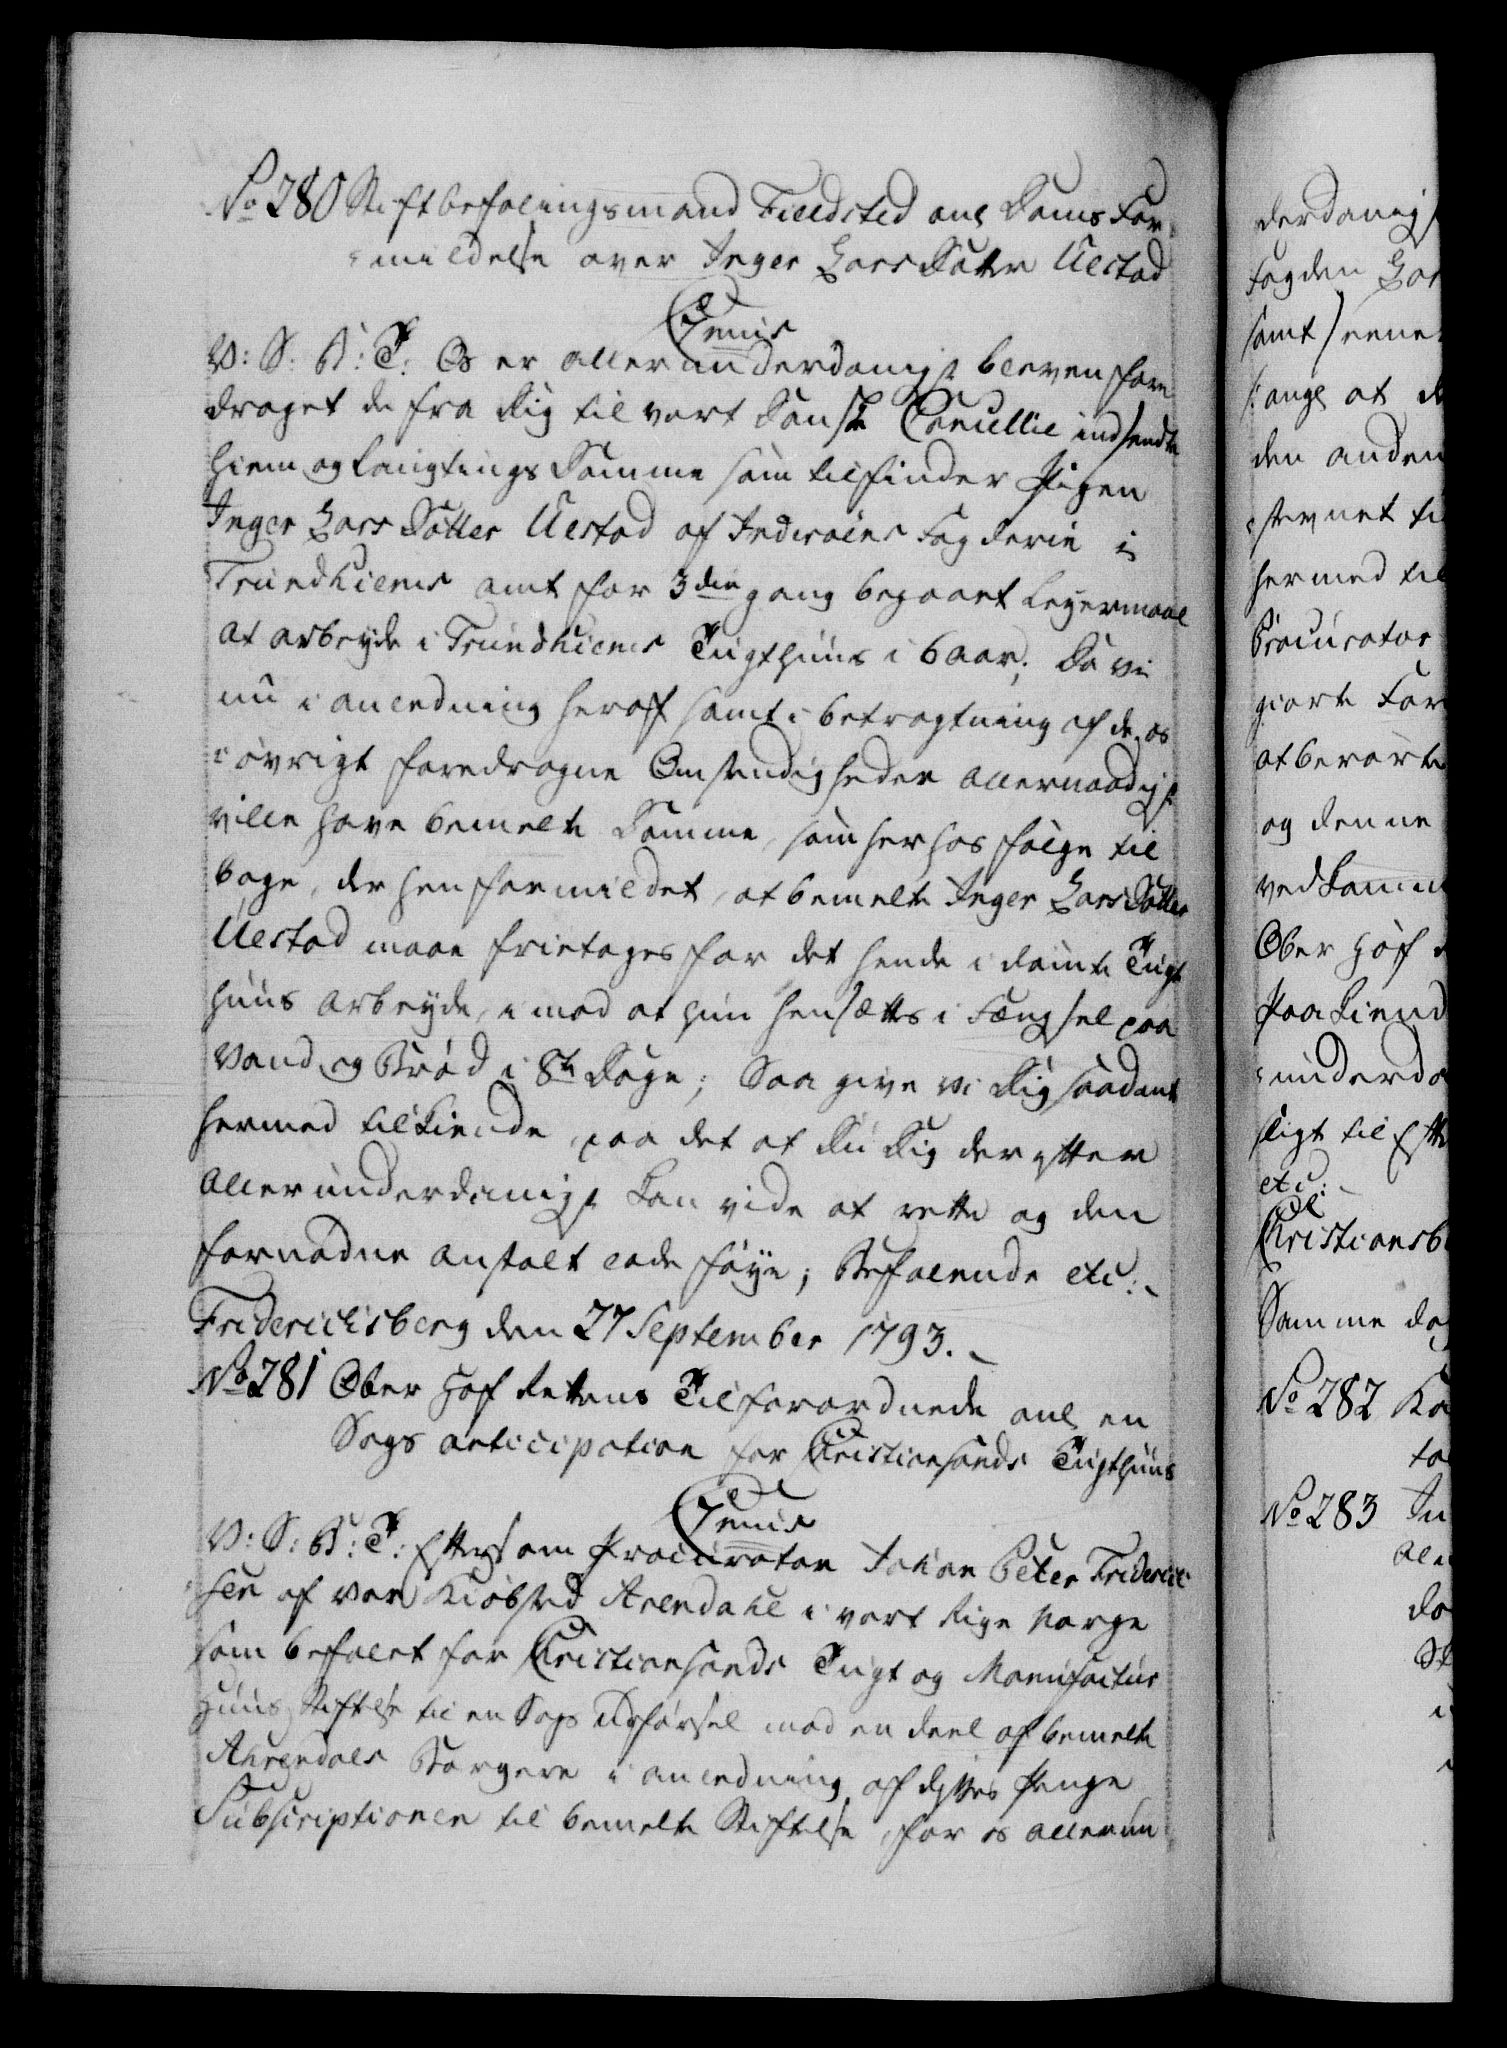 No 280 Stiftbefalingsmand Fieldsted anl Doms For¬
¬mildelse over Inger Lars Datter Uestad
C7enus
V: S: B: T: Os er allerunderdanigst bleven fore
draget de fra Dig til vort Danske Cancellie indsendte
Hiem og Laugtings Domme som tilfinder Pigen
Inger Lars Datter Uestad af Inderøens Fogderie i
Trundhiems amt for 3die gang begaaet Leyermaal
at arbeyde i Trundhiems Tugthuus i 6 aar; Da vi
nu i anledning heraf samt i betragtning af de os
i øvrigt foredragne Omstændigheder allernaadigst
ville have bemelte Domme, som herhos følge til
bage, derhen formildet, at bemelte Inger Lars Datter
Uestad maae fritages for det hende i dømte Tugt
huus arbeyde, imod at hun hensættes i Fængsel paa
Vand og Brød i 8te Dage; Saa give vi Dig saadant
hermed tilkiende, paa det at Du Dig derefter
allerunderdanigst kan vide at rette og den
fornødne anstalt lade føye; Befalende etc:
Friderichsberg den 27 September 1793.
No 281 Ober Hof Rettens Tilforordnede anl en
Sags anticipation for Christiansands Tugthuus
C7enus
V: S: B: T: Eftersom Procurator Johan Peter Friderich
sen af vor Kiøbsted Arendahl i vort Rige Norge
som befalet for Christiansands Tugt og Manufactur
Huus Stiftelse til en Sags Udførsel mod en deel af bemelte
Ahrendals Borgere i anledning af dessens Penge
Subscriptionen til bemelte Stiftelse, for os allerun
derdanigst
Fogden Lar
samt
ange at de
den anden
stevnet ti
hermed til
Procurator
giorte For
at berørte
og denne
vedkomm
Ober Hof
Paakiend
¬underda
sligt til Efte
etc:
Christiansb
Samme da
No 282 Ko
to
No 283 In
ale
do